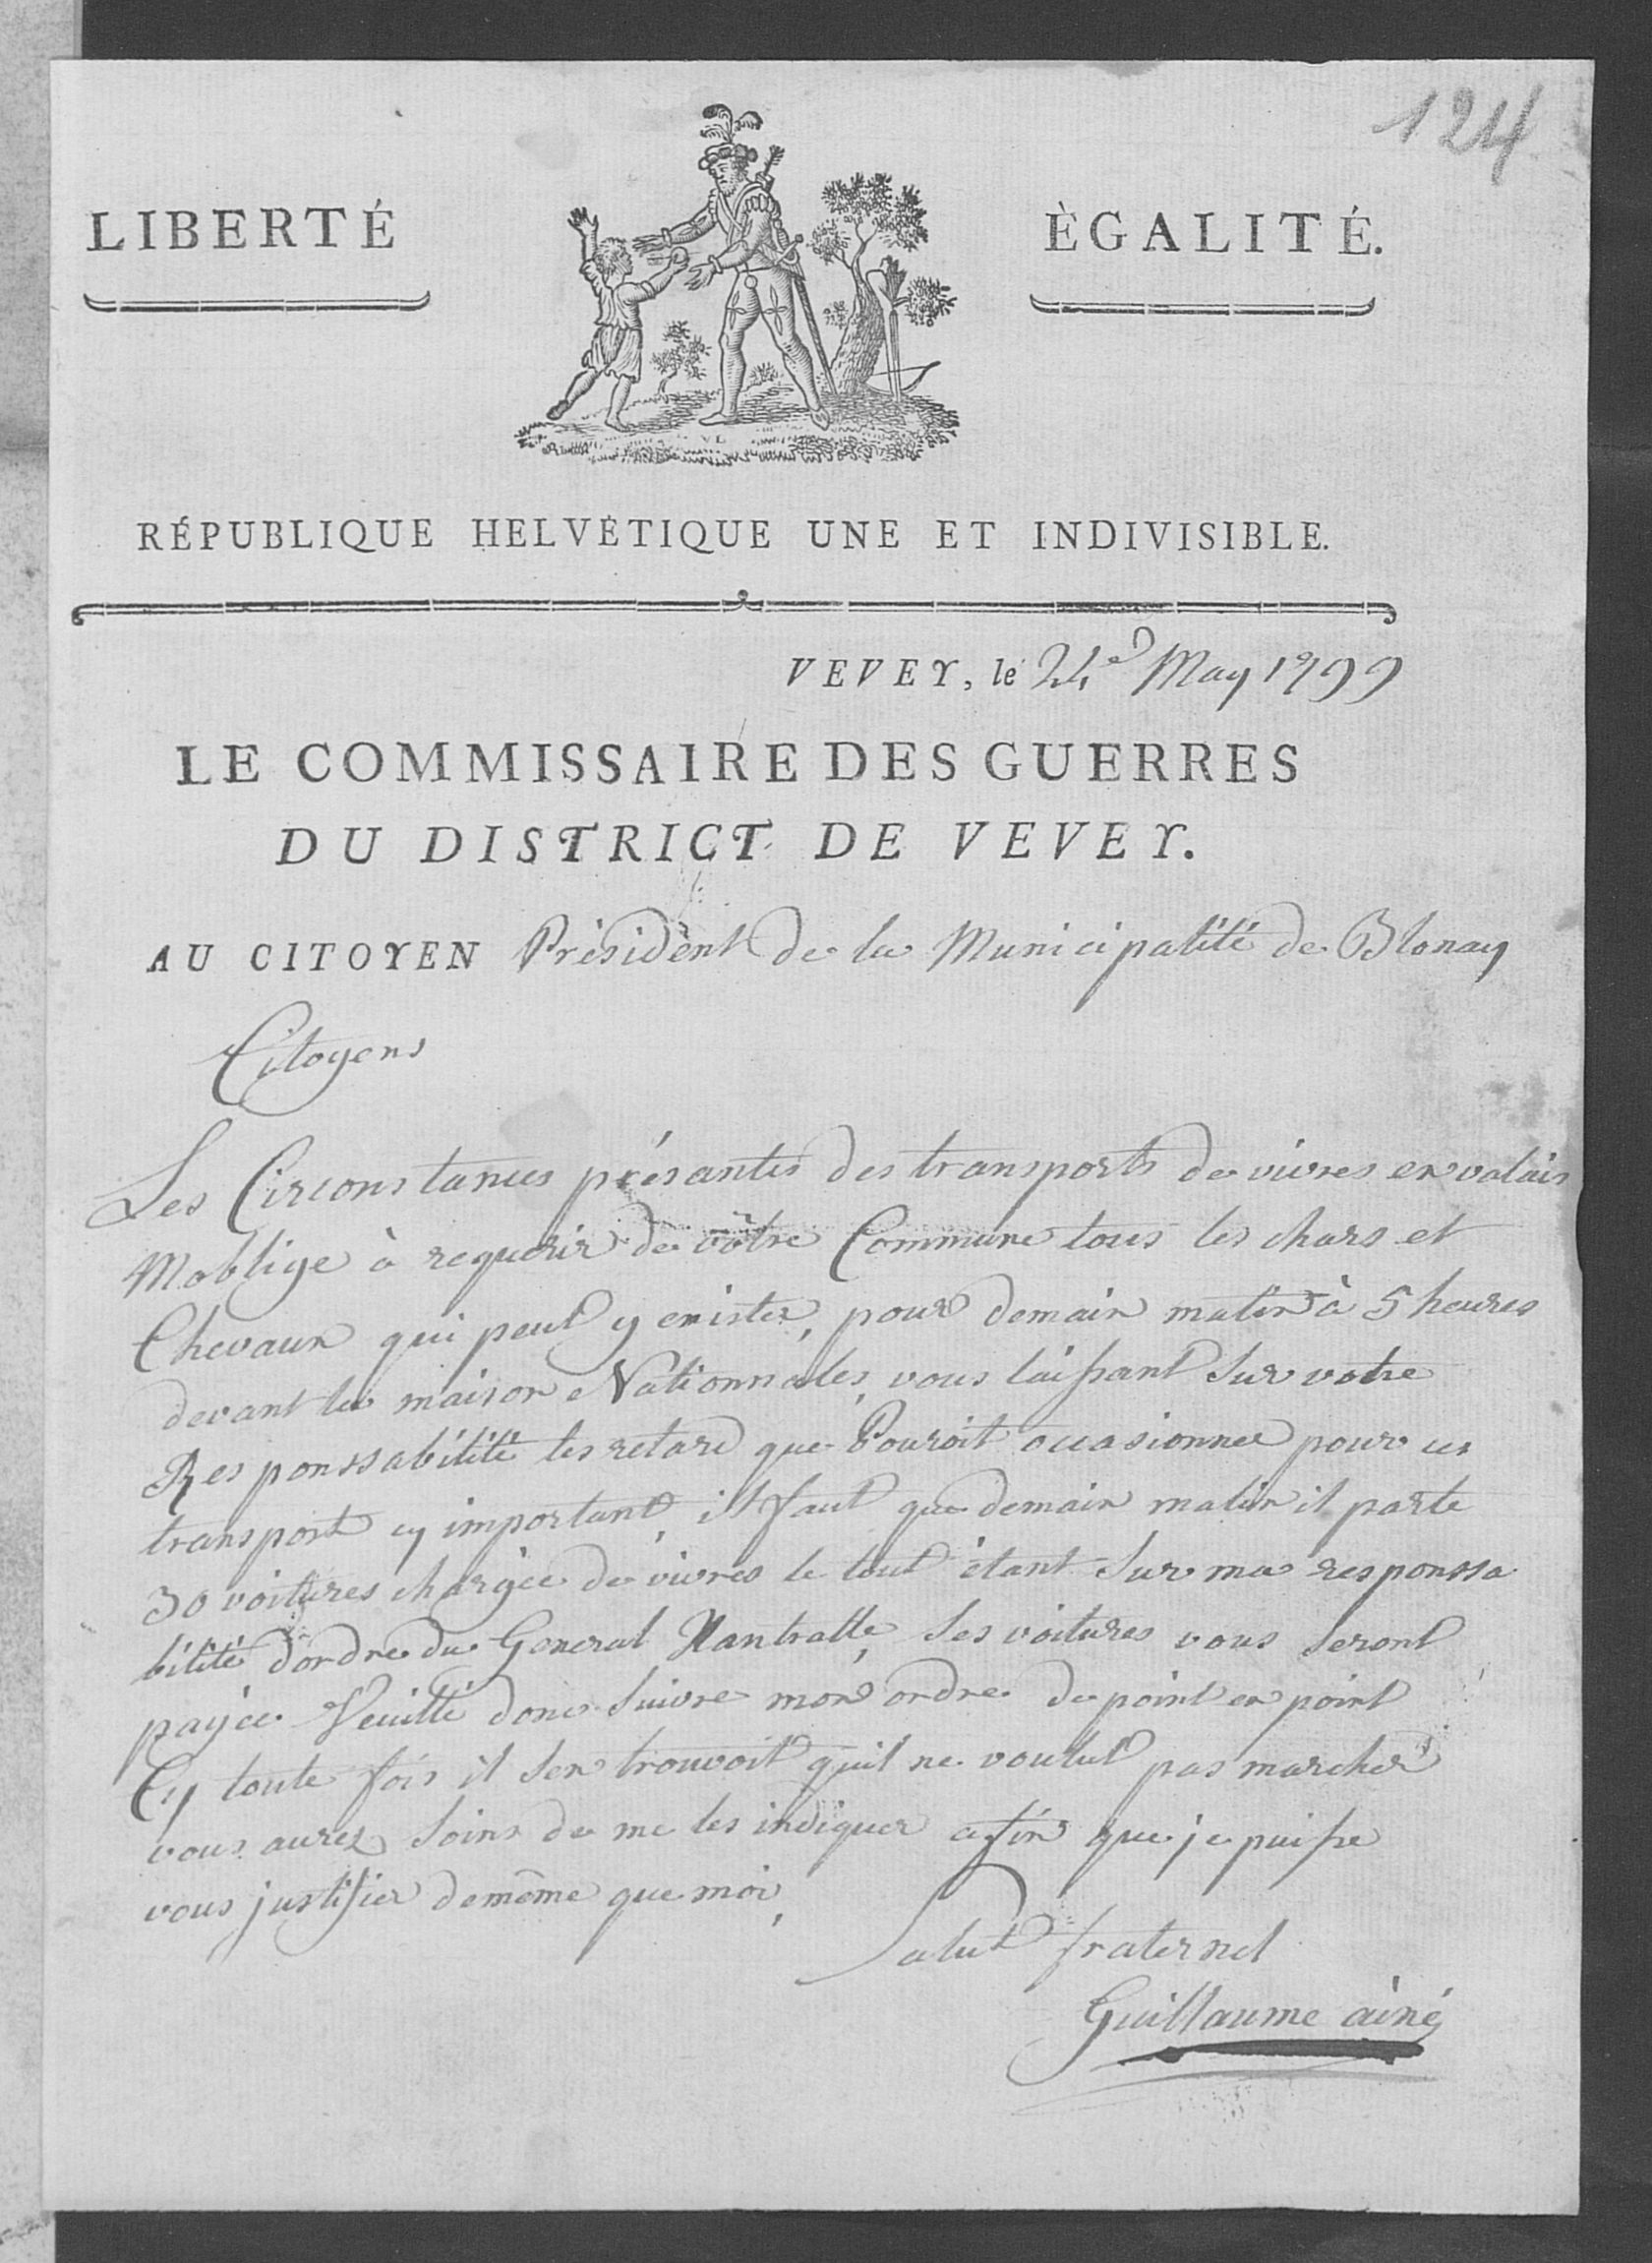 124
LIBERTÉ ÈGALITÉ.
RÉPUBLIQUE HELVÉTIQUE UNE ET INDIVISIBLE.
VEVEY, le 24e May 1799
LE COMMISSAIRE DES GUERRES
DU DISTRICT DE VEVEY.
AU CITOYEN Présidènt de la Municipalité de Blonay
Citoyens
Les Circonstances présantes des transports de vivres en valais
Moblige à requerir de vôtre Commune tous les chars et
Chevaux qui peut y exister, pour demain matin à 5 heures
devant la maison Nationnales, vous laissant sur votre
Responssabilité les retard que Pouroit occasionner pour ces
transport cy important, il faut que demain matin il parte
30 voitures chargée de vivres le tout étant sur ma responssa
bilité d'ordre du General Xantralle, les voitures vous seront
payée Veuillé donc suivre mon ordre de point en point
Cy toute fois il sen trouvoit quil ne voulut pas marcher
vous aurez soins de me les indiquer afin que je puisse
vous justifier de même que moi,
Salut fraternel
Guillaume ainé